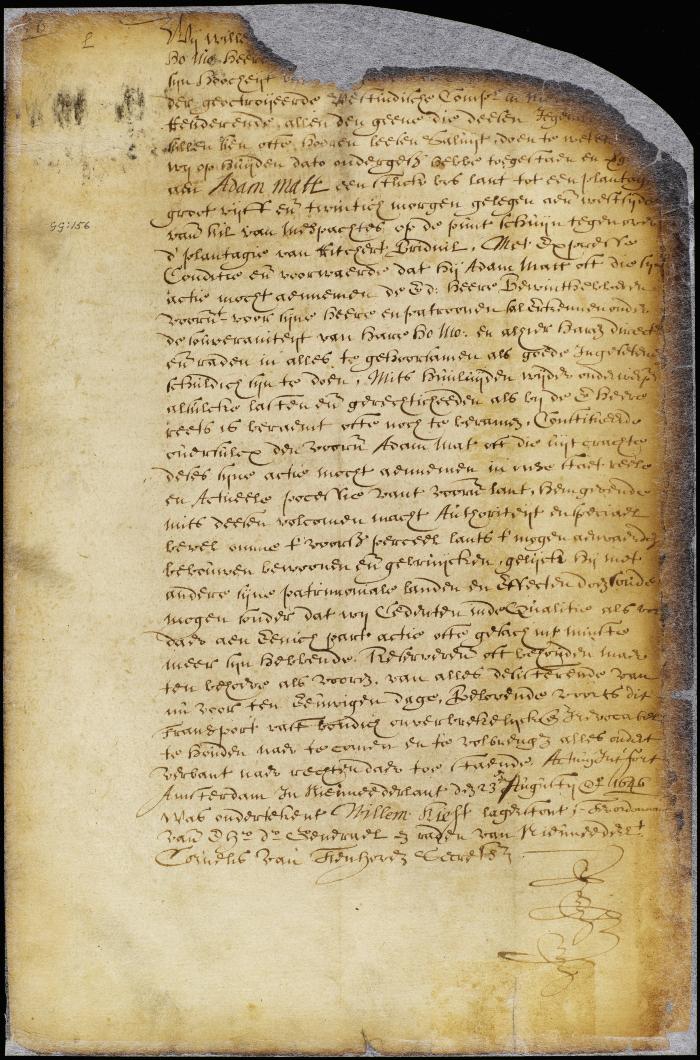 2
GG:156
Wij Wille
Ho Mo: Heere
sijn Hoocheijt
der geoctroijeerde Westindische Compe in
Residerende, allen den geene die deesen
sullen sien ofte hooren leesen Saluijt, doen te weten
wij op huijden dato ondergesz hebbe toegestaen en
aen Adam Matt een stuck bos lant tot een plantag
groot vijff en twintich morgen gelegen aen westsijde
vant kil van Mespachtes op de punt schuijn tegenover
d'plantagie van Ritchert Bridnil, Met Expresse
Conditie en voorwaerde dat hij Adam Matt oft die sijn
actie mocht aennemen de Ed: heere Bewinthebberen
voorn voor sijne heere en patroonen sal Erkennen onder
de souveraniteijt van haere Ho Mo: en alhier haere direct
en raden in alles te gehoorsamen als goede Ingesetene
schuldich sijn te doen, Mits hunluijden wijders onderwerp
alsulcke lasten en gerechticheeden als bij de E heere
reets is beraemt ofte noch te beramen, Constitueerde
oversulcx den voorn Adam Mat oft die uijt crachte
deses sijne actie mocht aennemen in onse staet reele
en Actueele possessie vant voors lant, hem gevende
mits deesen volcomen macht Authoriteijt en speciael
bevel omme t'voorsz perceel lants te mogen aenvaerden
bebouwen bewoonen en gebruijcken, gelijck hij met
andere sijne patrimoniale landen en Effecten doen soude
mogen sonder dat wij Cedenten inde Qualitie als
daer aen Eenich part actie ofte gesach int minste
meer sijn hebbende, Reserveren oft behouden maer
ten behoeve als voorsz. van alles desisterende van
nu voor ten Eeuwigen dage, Belovende voorts dit
Transport vast bondich onverbreekelijck en Irevocabel
te houden naer te comen en te volbrengen alles onder
verbant naer rechten daer toe staende. Actum Int fort
Amsterdam In Nieuneederlant den 23 Augustij Ao 1646
Was onderteekent Willem Kieft lager stont
van d'hr dr Generael en raden van Nieuneederlt
Cornelis van Tienhoven Secrets